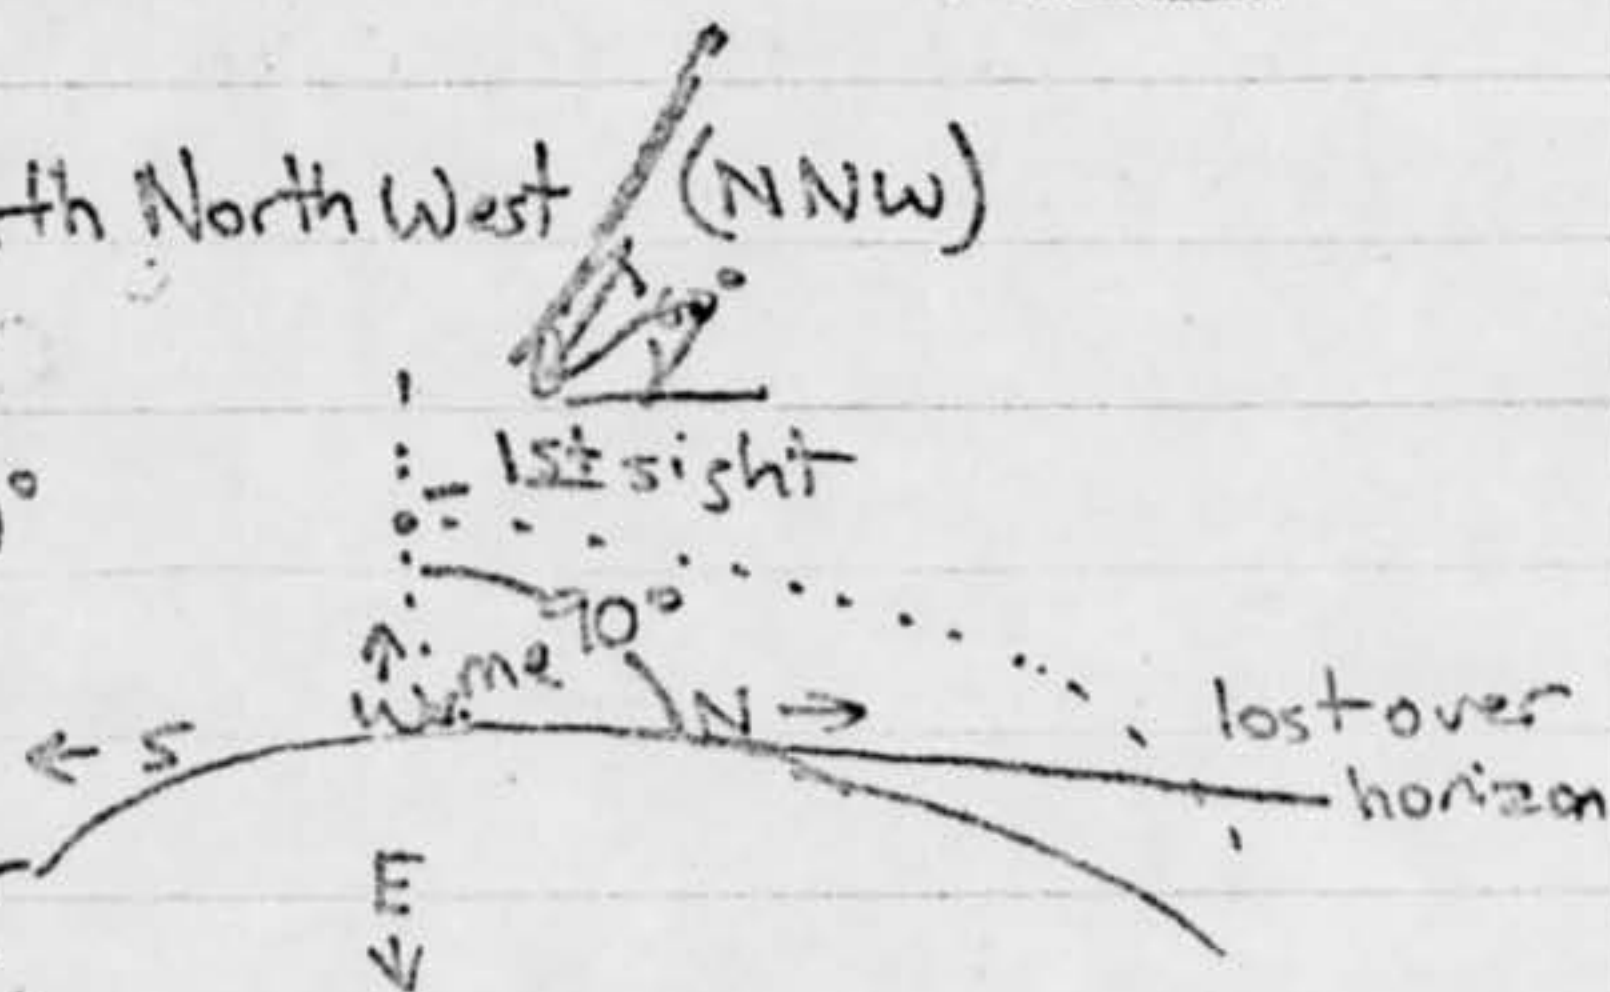 th North West (NNW)
°
1st sight
90°
me
W
N →
← S
lost over
horizon
E